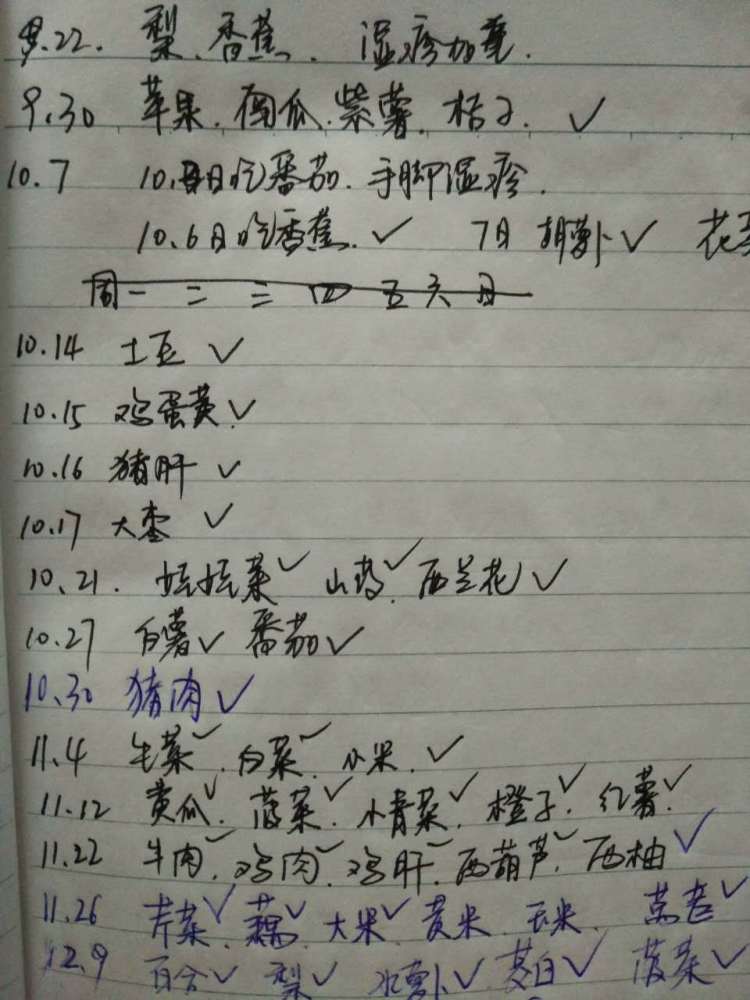 9.22. 梨.香蕉. 湿疹加重.
9.30 苹果.南瓜.紫薯.桔子. ✓
10.7 10. 日吃番茄.手脚湿疹.
10.6日吃香蕉.✓ 7日 胡萝卜✓ 花菜
周一 二 三 四 五 六 日
10.14 土豆 ✓
10.15 鸡蛋黄✓
10.16 猪肝 ✓
10.17 大枣 ✓
10.21. 娃娃菜✓ 山药✓.西兰花✓
10.27 白薯✓ 番茄✓
10.30 猪肉✓
11.4 生菜✓.白菜✓.小米.✓
11.12 黄瓜✓.菠菜✓.小青菜✓.橙子✓.红薯✓.
11.22 牛肉✓.鸡肉✓.鸡肝✓.西葫芦✓.西柚✓
11.26 芹菜✓.藕✓.大米✓.黄米.玉米. 莴苣✓
12.9 百合✓ 梨✓ 水萝卜✓ 茭白✓ 菠菜✓